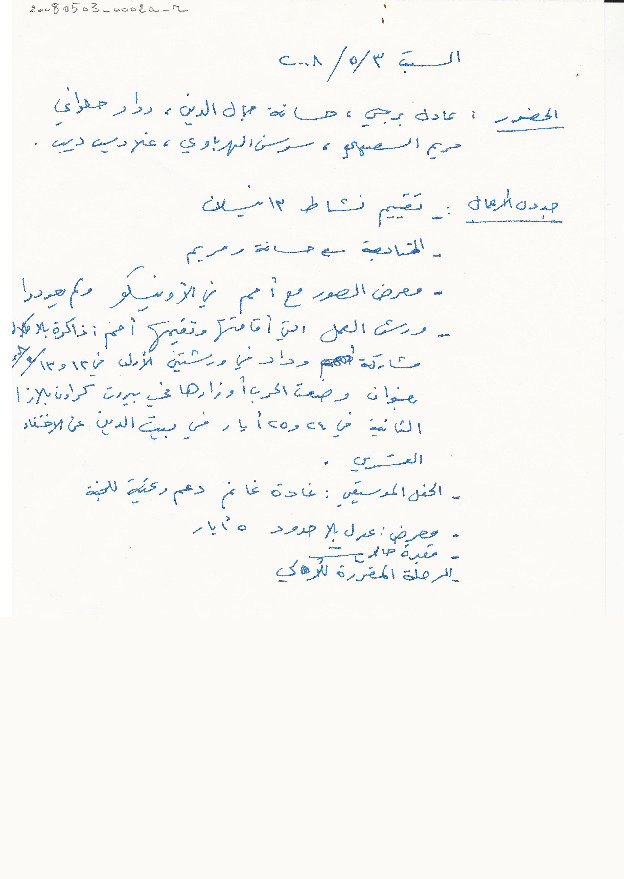 20080503_0002a_r
السبت ٣/٥/٢٠٠٨
الحضور : عادل برجي ، حسانة جمال الدين ، وداد حلواني
مريم السعيدي ، سوسن الهرباوي ، غلاديس ديب .
جدول الأعمال : - تقييم نشاط ١٣ نيسان
- المتابعة مع حسانة ومريم
- معرض الصور مع أمم في الأونيسكو ولم يعودوا
- ورش العمل التي أقامتها وتقيمها أمم : ذاكرة بلا
مشاركة وداد في ورشتين الأولى في ١٢ و ١٣
بعنوان وضعت الحرب أوزارها في بيروت كراون بلازا
الثانية في ٢٤ و ٢٥ أيار في بيت الدين عن الاختفاء
القسري .
- الحفل الموسيقي : غادة غانم دعم وعتية للجنة
- معرض : عدل بلا حدود ٥ أيار
- مقبرة
- الرحلة المقررة للأهالي